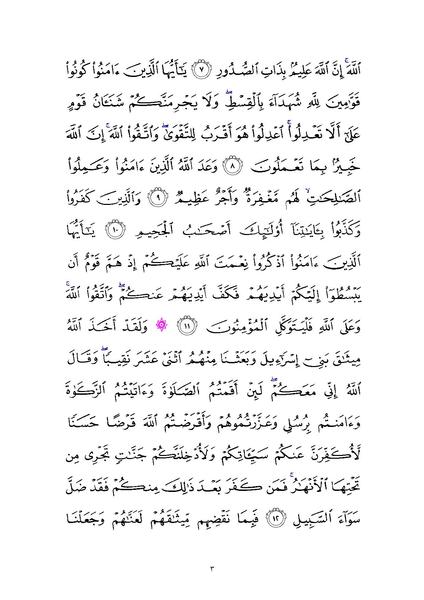 ٱللَّهَۚ إِنَّ ٱللَّهَ عَلِيمُۢ بِذَاتِ ٱلصُّدُورِ ٧ يَٰٓأَيُّهَا ٱلَّذِينَ ءَامَنُواْ كُونُواْ
قَوَّٰمِينَ لِلَّهِ شُهَدَآءَ بِٱلۡقِسۡطِۖ وَلَا يَجۡرِمَنَّكُمۡ شَنَـَٔانُ قَوۡمٍ
عَلَىٰٓ أَلَّا تَعۡدِلُواْۚ ٱعۡدِلُواْ هُوَ أَقۡرَبُ لِلتَّقۡوَىٰۖ وَٱتَّقُواْ ٱللَّهَۚ إِنَّ ٱللَّهَ
خَبِيرُۢ بِمَا تَعۡمَلُونَ ٨ وَعَدَ ٱللَّهُ ٱلَّذِينَ ءَامَنُواْ وَعَمِلُواْ
ٱلصَّٰلِحَٰتِ لَهُم مَّغۡفِرَةٞ وَأَجۡرٌ عَظِيمٞ ٩ وَٱلَّذِينَ كَفَرُواْ
وَكَذَّبُواْ بِـَٔايَٰتِنَآ أُوْلَٰٓئِكَ أَصۡحَٰبُ ٱلۡجَحِيمِ ١٠ يَٰٓأَيُّهَا
ٱلَّذِينَ ءَامَنُواْ ٱذۡكُرُواْ نِعۡمَتَ ٱللَّهِ عَلَيۡكُمۡ إِذۡ هَمَّ قَوۡمٌ أَن
يَبۡسُطُوٓاْ إِلَيۡكُمۡ أَيۡدِيَهُمۡ فَكَفَّ أَيۡدِيَهُمۡ عَنكُمۡۖ وَٱتَّقُواْ ٱللَّهَۚ
وَعَلَى ٱللَّهِ فَلۡيَتَوَكَّلِ ٱلۡمُؤۡمِنُونَ ١١ ۞ وَلَقَدۡ أَخَذَ ٱللَّهُ
مِيثَٰقَ بَنِيٓ إِسۡرَٰٓءِيلَ وَبَعَثۡنَا مِنۡهُمُ ٱثۡنَيۡ عَشَرَ نَقِيبٗاۖ وَقَالَ
ٱللَّهُ إِنِّي مَعَكُمۡۖ لَئِنۡ أَقَمۡتُمُ ٱلصَّلَوٰةَ وَءَاتَيۡتُمُ ٱلزَّكَوٰةَ
وَءَامَنتُم بِرُسُلِي وَعَزَّرۡتُمُوهُمۡ وَأَقۡرَضۡتُمُ ٱللَّهَ قَرۡضًا حَسَنٗا
لَّأُكَفِّرَنَّ عَنكُمۡ سَيِّـَٔاتِكُمۡ وَلَأُدۡخِلَنَّكُمۡ جَنَّٰتٖ تَجۡرِي مِن
تَحۡتِهَا ٱلۡأَنۡهَٰرُۚ فَمَن كَفَرَ بَعۡدَ ذَٰلِكَ مِنكُمۡ فَقَدۡ ضَلَّ
سَوَآءَ ٱلسَّبِيلِ ١٢ فَبِمَا نَقۡضِهِم مِّيثَٰقَهُمۡ لَعَنَّٰهُمۡ وَجَعَلۡنَا
٣